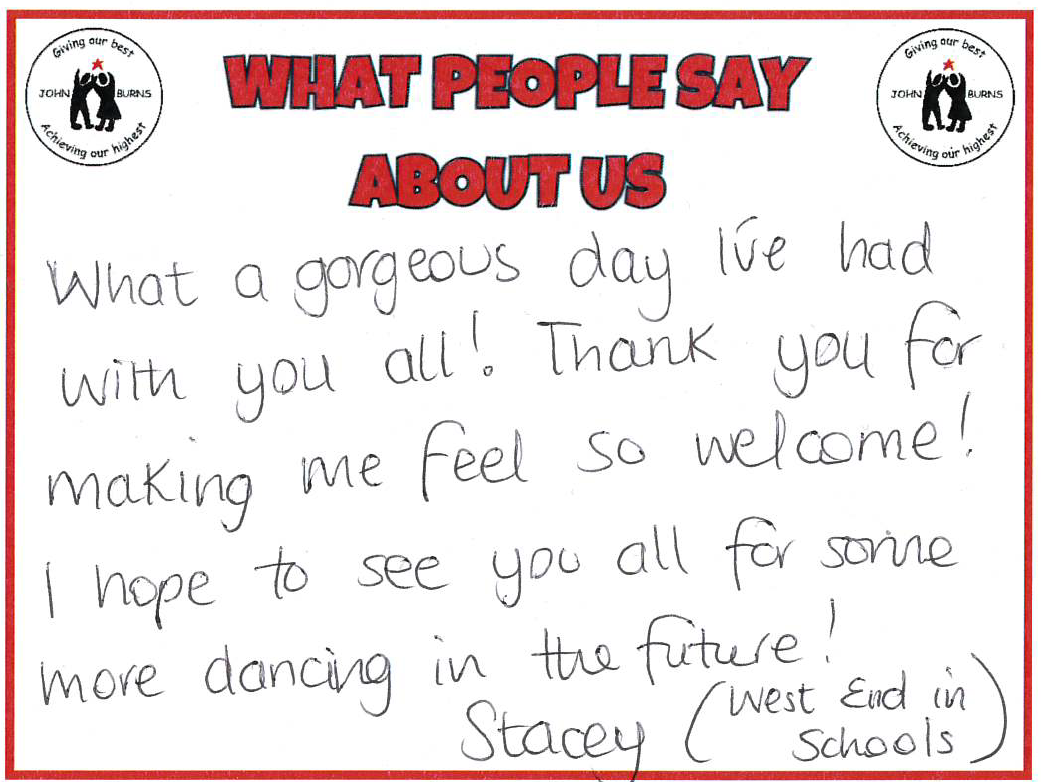 Giving our best
JOHN BURNS
Achieving our highest
WHAT PEOPLE SAY
ABOUT US
Giving our best
JOHN BURNS
Achieving our highest
What a gorgeous day I've had
with you all! Thank you for
making me feel so welcome!
I hope to see you all for some
more dancing in the future!
Stacey (West End in
Schools)